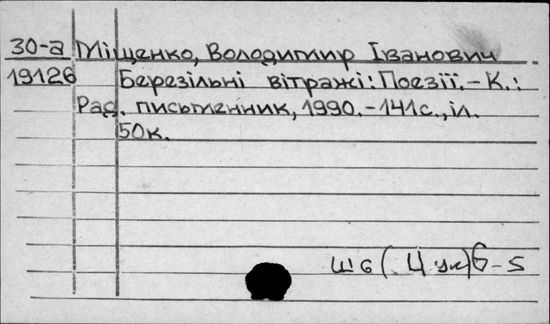 30-а Міщенко, Володимир Іванович
19126 Березільні вітражі: Поезії. – К.:
Рад. письменник, 1990. – 141с., іл.
50к.
Ш6(4Ук)6-5